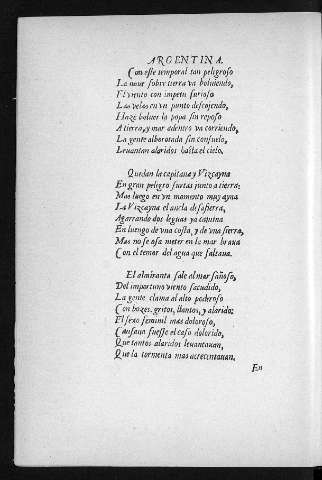 ARGENTINA.
Con este temporal tan peligroso
La naue sobre tierra va boluiendo,
El viento con impetu furioso
Las velas en vn punto descojendo,
Haze boluer la popa sin reposo
A tierra, y mar adentro va corriendo,
La gente alborotada sin consuelo,
Leuantan alaridos hasta el cielo.

Quedan la capitana y Vizcayna
En gran peligro surtas junto a tierra:
Mas luego en vn momento muy ayna
La Vizcayna el ancla desafierra,
Agarrando dos leguas ya camina
En luengo de vna costa, y de vna sierra,
Mas no se osa meter en la mar braua
Con el temor del agua que faltaua.

El almiranta sale al mar sañoso,
Del importuno viento sacudido,
La gente clama al alto poderoso
Con bozes, gritos, llantos, y alarido:
El sexo feminil mas doloroso,
Causaua fuesse el caso dolorido,
Que tantos alaridos leuantauan,
Que la tormenta mas acrecentauan.
En